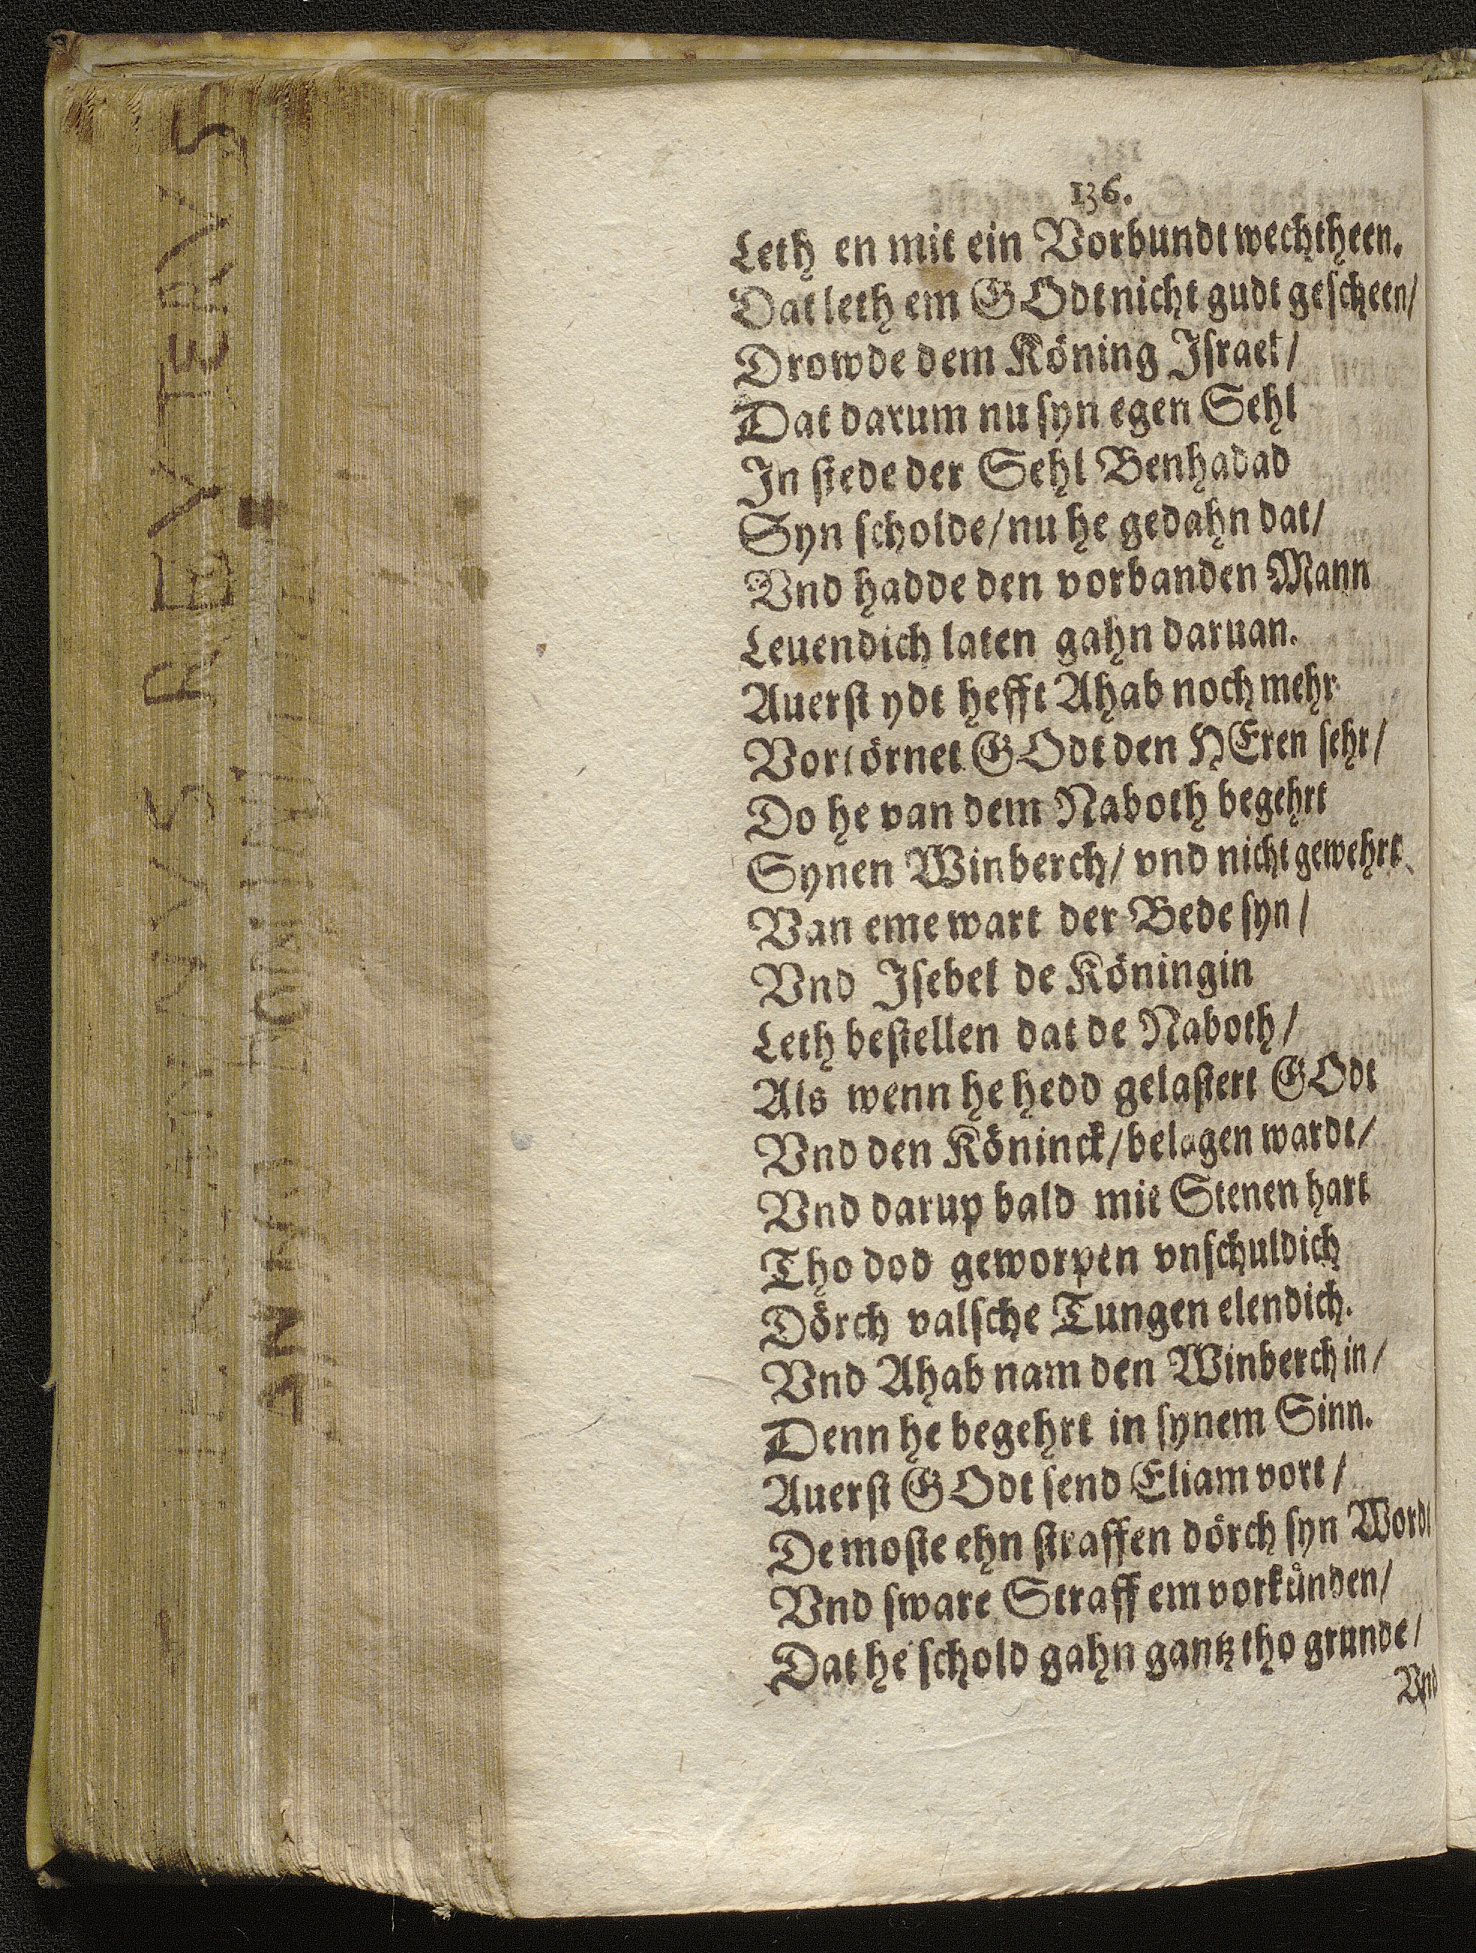 136.
Leth en mit ein Vorbundt wechtheen.
Dat leth em GOdt nicht gudt gescheen/
Drowde dem Köning Israel/
Dat darum nu syn egen Sehl
In stede der Sehl Benhadad
Syn scholde/ nu he gedahn dat/
Vnd hadde den vorbanden Mann
Leuendich laten gahn daruan.
Auerst ydt hefft Ahab noch mehr
Vortörnet GOdt den HEren sehr/
Do he van dem Naboth begehrt
Synen Winberch/ vnd nicht gewehrt
Van eme wart der Bede syn/
Vnd Isebel de Köningin
Leth bestellen dat de Naboth/
Als wenn he hedd gelastert GOdt
Vnd den Köninck/ belagen wardt/
Vnd darup bald mit Stenen hart
Tho dod geworpen vnschuldich
Dörch valsche Tungen elendich.
Vnd Ahab nam den Winberch in/
Denn he begehrt in synem Sinn.
Auerst GOdt send Eliam vort/
De moste ehn straffen dörch syn Wordt
Vnd sware Straff em vorkůnden/
Dat he schold gahn gantz tho grunde/
Vnd
REVTERVS
ANNO DOMINI